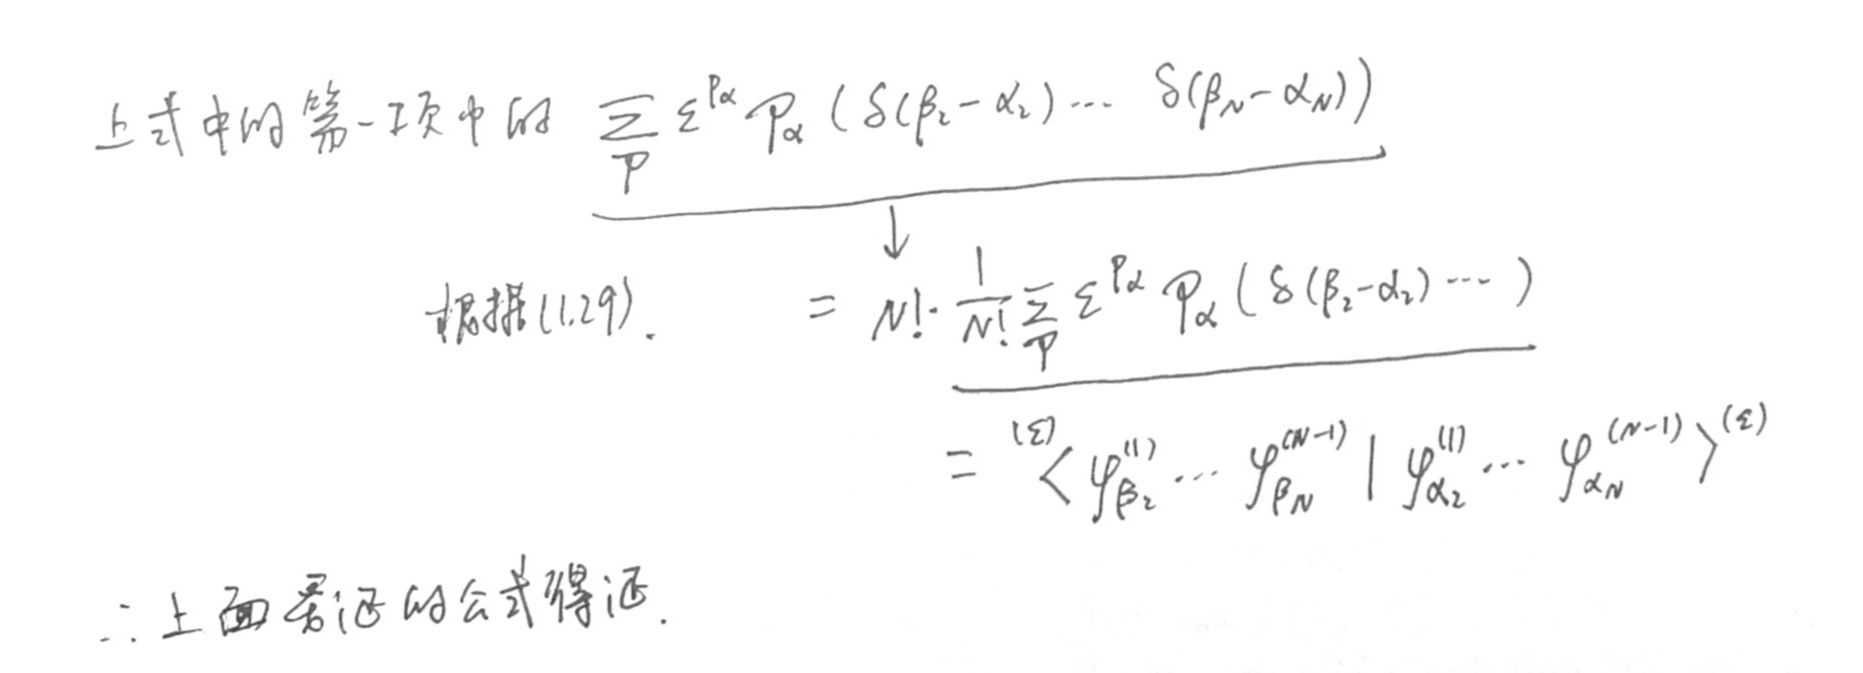 上式中的第一项中的 $\sum_{P} \varepsilon^{P_\alpha} P_\alpha ( \delta(\beta_2 - \alpha_2) \cdots \delta(\beta_N - \alpha_N) )$
↓
根据(1.29). $= N! \cdot \frac{1}{N!} \sum_{P} \varepsilon^{P_\alpha} P_\alpha ( \delta(\beta_2 - \alpha_2) \cdots )$
$= {}^{(\varepsilon)}\langle \varphi_{\beta_2}^{(1)} \cdots \varphi_{\beta_N}^{(N-1)} | \varphi_{\alpha_2}^{(1)} \cdots \varphi_{\alpha_N}^{(N-1)} \rangle^{(\varepsilon)}$
∴上面需证的公式得证.